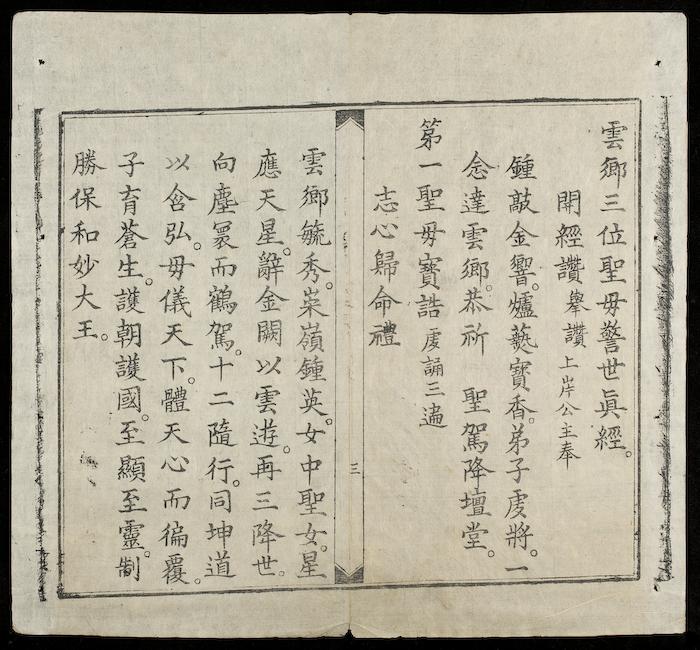 雲鄉三位聖毋警世眞經。
開經讚 舉讚 上岸公主奉
鍾敲金響。爐爇寶香。弟子虔將。一
念達雲鄉。恭祈 聖駕降壇堂。
第一聖毋寶誥 虔誦三遍
志心歸命禮
三
雲鄉毓秀。菜嶺鍾英。女中聖女。星
應天星。辭金闕以雲遊。再三降世。
向塵寰而鶴駕。十二隨行。同坤道
以含弘。毋儀天下。體天心而徧覆。
子育蒼生。護朝護國。至顯至靈。制
勝保和妙大王。